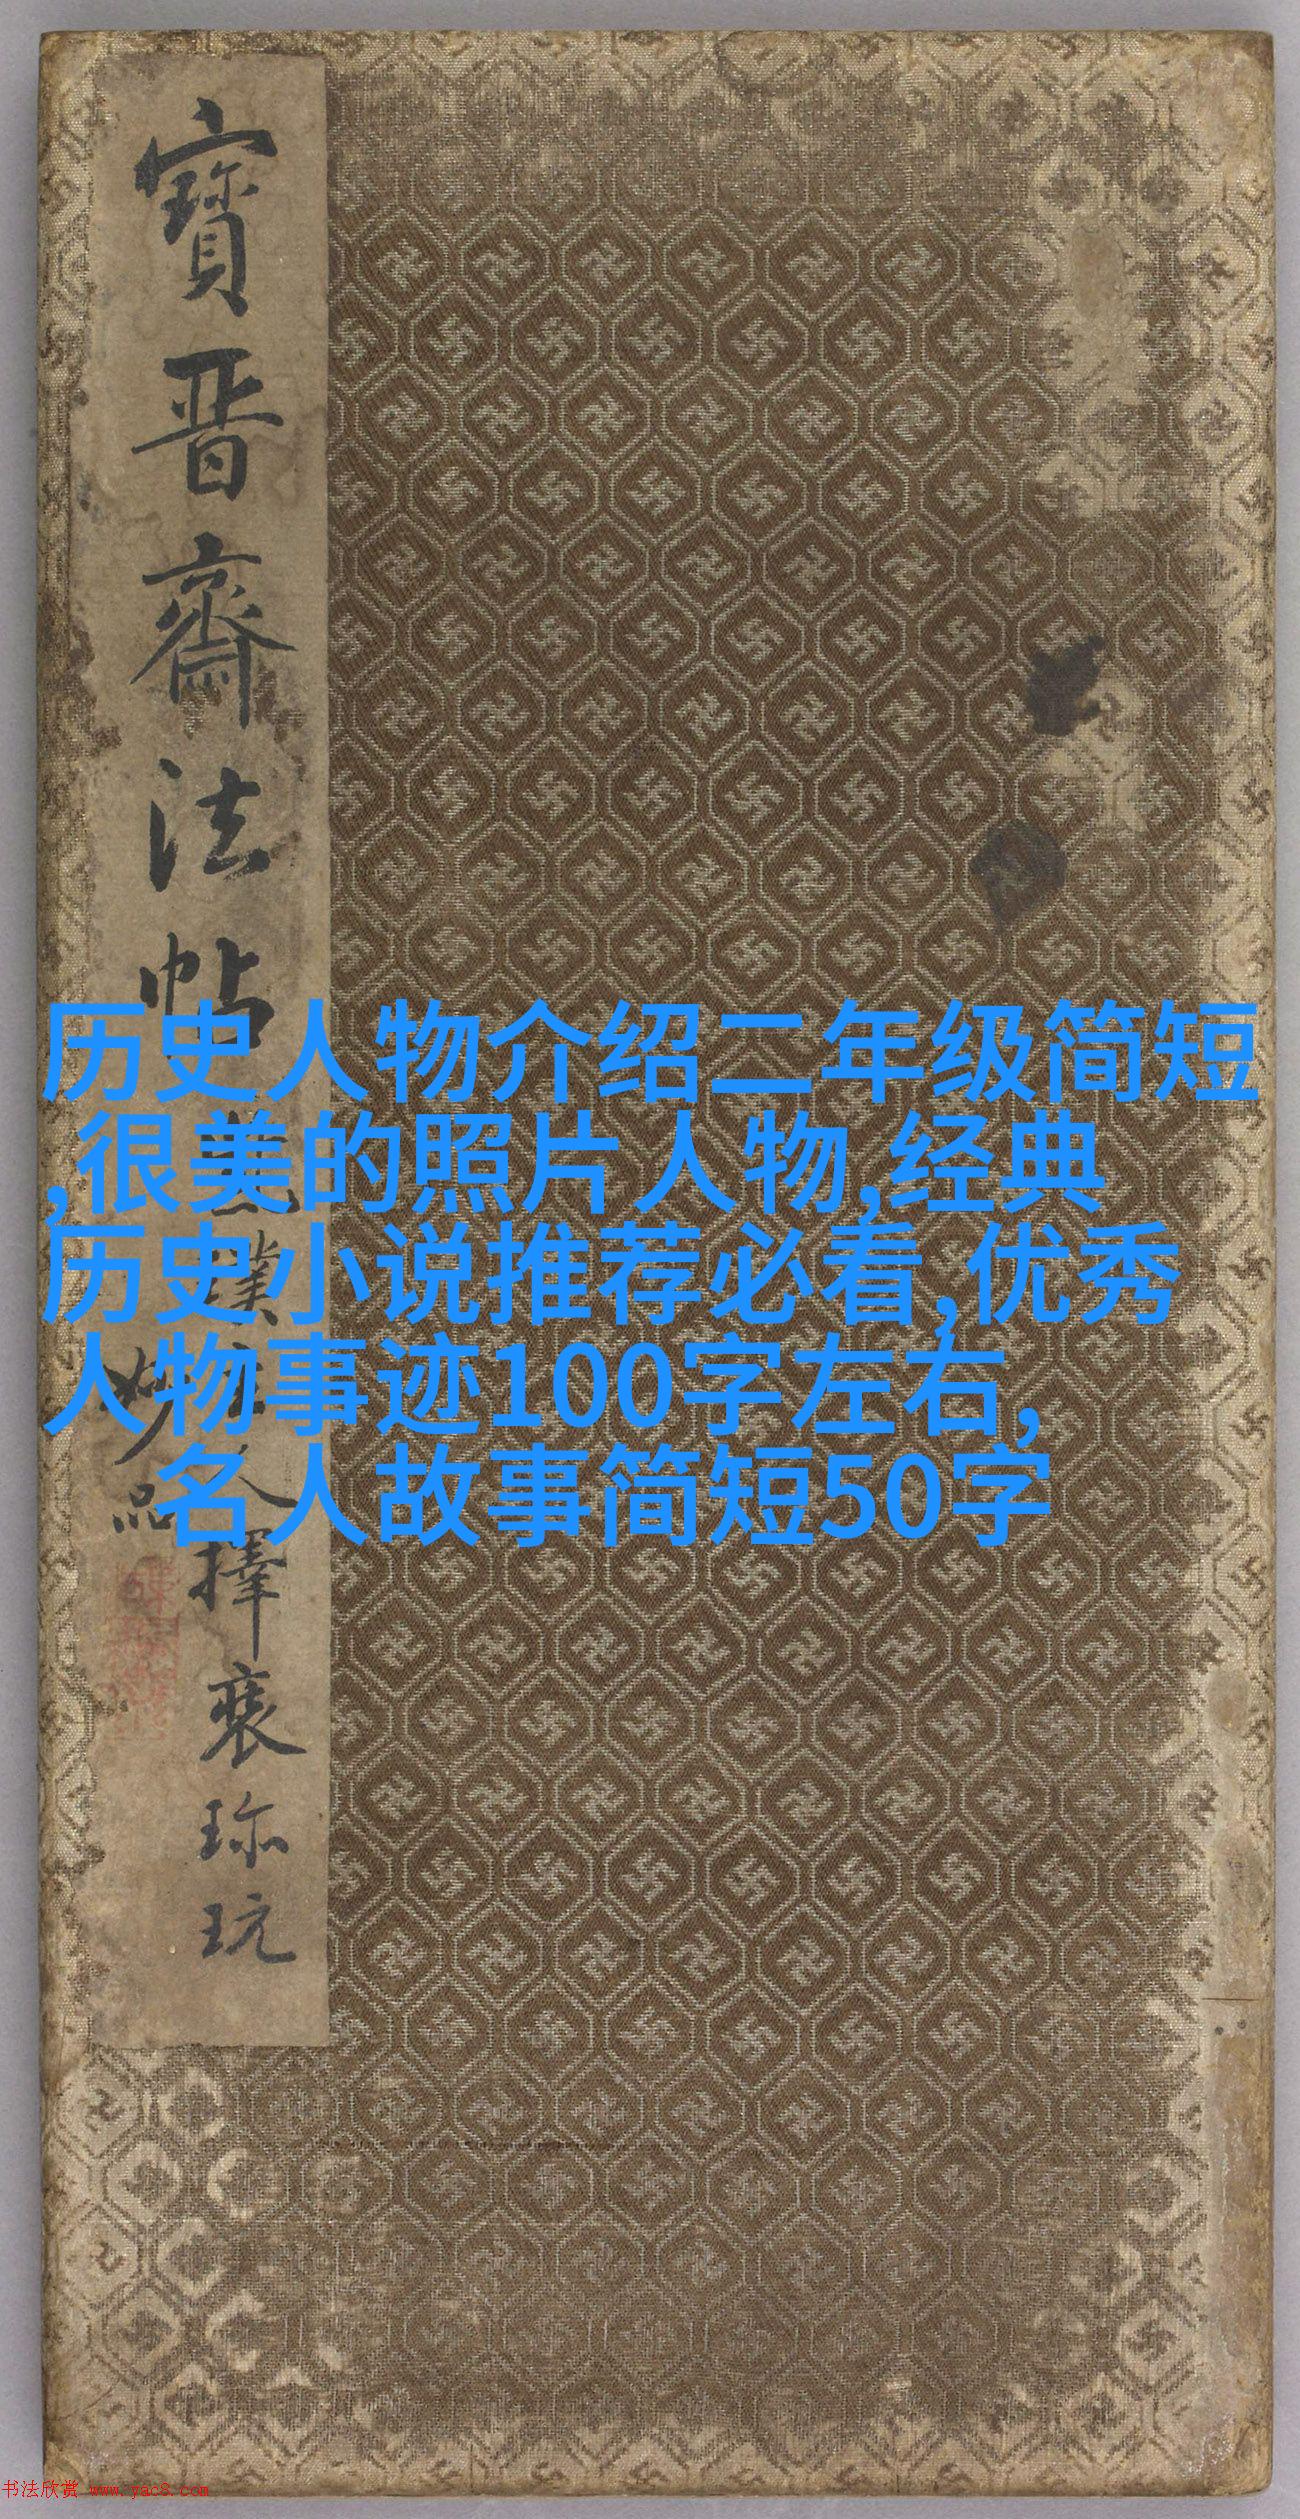 寶晋齋法帖
擇裘珎玩
妙品
历史人物介绍二年级简短
,很美的照片人物,经典
历史小说推荐必看,优秀
人物事迹100字左右,
名人故事简短50字
书法欣赏 www.yac8.com